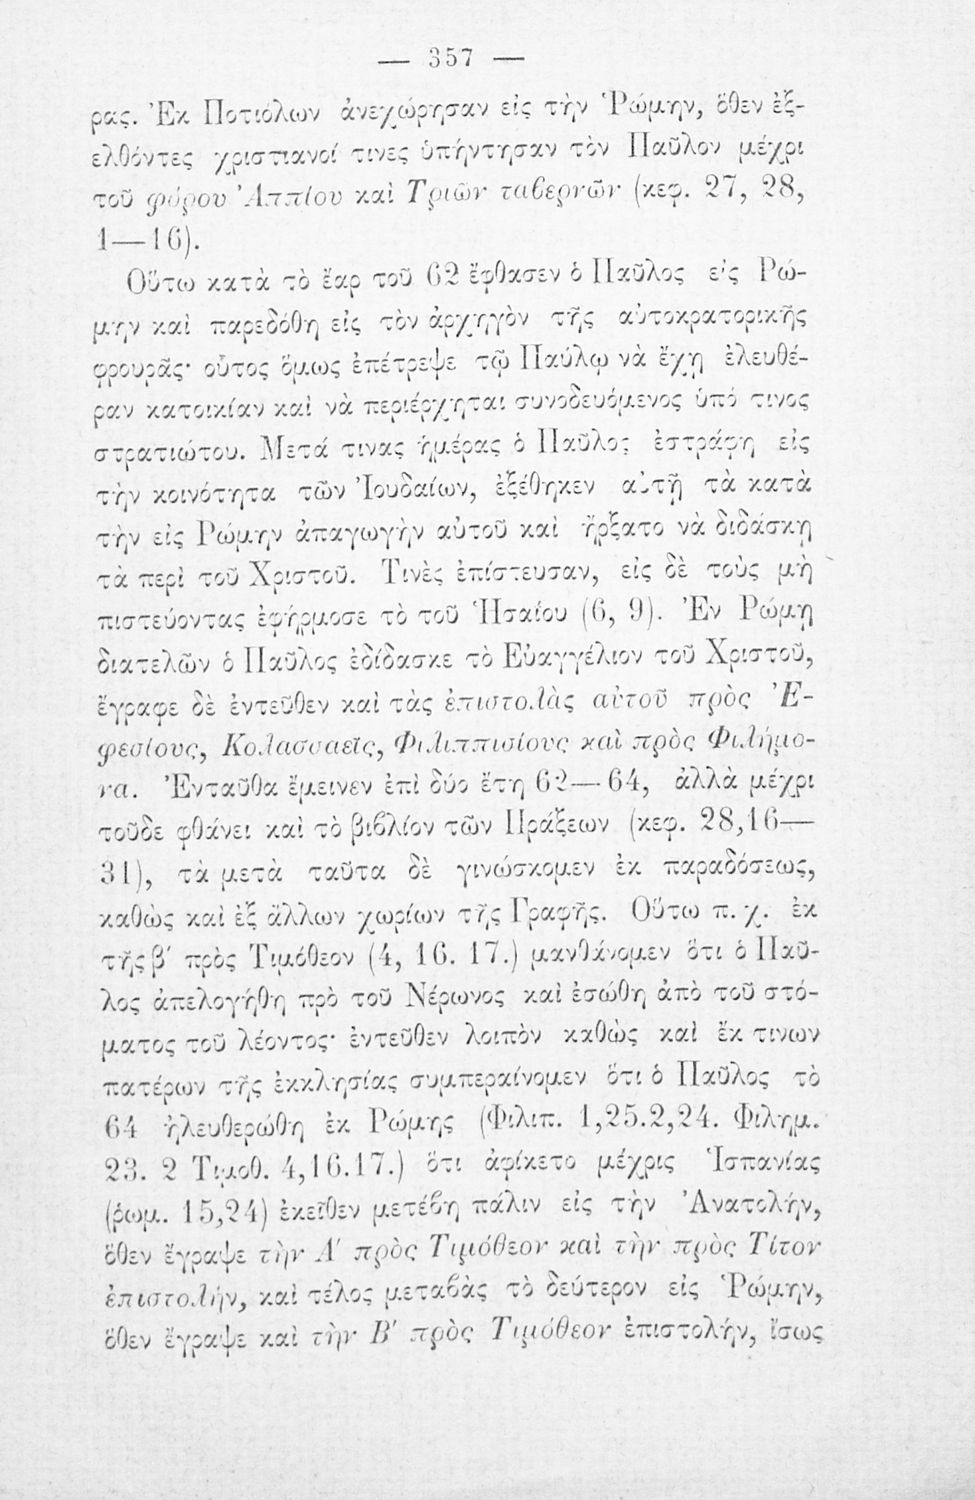 — 357 —
ρας. Ἐκ Ποτιόλων ἀνεχώρησαν εἰς τὴν Ῥώμην, ὅθεν ἐξ-
ελθόντες χριστιανοί τινες ὑπήντησαν τὸν Παῦλον μέχρι
τοῦ φόρου Ἀππίου καὶ Τριῶν ταβερνῶν (κεφ. 27, 28,
1—16).
Οὕτω κατὰ τὸ ἔαρ τοῦ 62 ἔφθασεν ὁ Παῦλος εἰς Ῥώ-
μην καὶ παρεδόθη εἰς τὸν ἀρχηγὸν τῆς αὐτοκρατορικῆς
φρουρᾶς· οὗτος ὅμως ἐπέτρεψε τῷ Παύλῳ νὰ ἔχῃ ἐλευθέ-
ραν κατοικίαν καὶ νὰ περιέρχηται συνοδευόμενος ὑπό τινος
στρατιώτου. Μετά τινας ἡμέρας ὁ Παῦλος ἐστράφη εἰς
τὴν κοινότητα τῶν Ἰουδαίων, ἐξέθηκεν αὐτῇ τὰ κατὰ
τὴν εἰς Ῥώμην ἀπαγωγὴν αὐτοῦ καὶ ἤρξατο νὰ διδάσκῃ
τὰ περὶ τοῦ Χριστοῦ. Τινὲς ἐπίστευσαν, εἰς δὲ τοὺς μὴ
πιστεύοντας ἐφήρμοσε τὸ τοῦ Ἡσαίου (6, 9). Ἐν Ῥώμῃ
διατελῶν ὁ Παῦλος ἐδίδασκε τὸ Εὐαγγέλιον τοῦ Χριστοῦ,
ἔγραφε δὲ ἐντεῦθεν καὶ τὰς ἐπιστολὰς αὐτοῦ πρὸς Ἐ-
φεσίους, Κολασσαεῖς, Φιλιππισίους καὶ πρὸς Φιλήμο-
να. Ἐνταῦθα ἔμεινεν ἐπὶ δύο ἔτη 62—64, ἀλλὰ μέχρι
τοῦδε φθάνει καὶ τὸ βιβλίον τῶν Πράξεων (κεφ. 28,16—
31), τὰ μετὰ ταῦτα δὲ γινώσκομεν ἐκ παραδόσεως,
καθὼς καὶ ἐξ ἄλλων χωρίων τῆς Γραφῆς. Οὕτω π. χ. ἐκ
τῆς β΄ πρὸς Τιμόθεον (4, 16. 17.) μανθάνομεν ὅτι ὁ Παῦ-
λος ἀπελογήθη πρὸ τοῦ Νέρωνος καὶ ἐσώθη ἀπὸ τοῦ στό-
ματος τοῦ λέοντος· ἐντεῦθεν λοιπὸν καθὼς καὶ ἔκ τινων
πατέρων τῆς ἐκκλησίας συμπεραίνομεν ὅτι ὁ Παῦλος τὸ
64 ἠλευθερώθη ἐκ Ῥώμης (Φιλιπ. 1,25.2,24. Φιλημ.
23. 2 Τιμοθ. 4,16.17.) ὅτι ἀφίκετο μέχρις Ἱσπανίας
(ῥωμ. 15,24) ἐκεῖθεν μετέβη πάλιν εἰς τὴν Ἀνατολήν,
ὅθεν ἔγραψε τὴν Α΄ πρὸς Τιμόθεον καὶ τὴν πρὸς Τίτον
ἐπιστολήν, καὶ τέλος μεταβὰς τὸ δεύτερον εἰς Ῥώμην,
ὅθεν ἔγραψε καὶ τὴν Β΄ πρὸς Τιμόθεον ἐπιστολήν, ἴσως